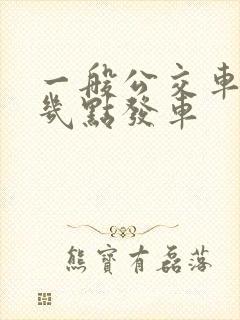 一般公交車
幾點發車
熊寶有磊落